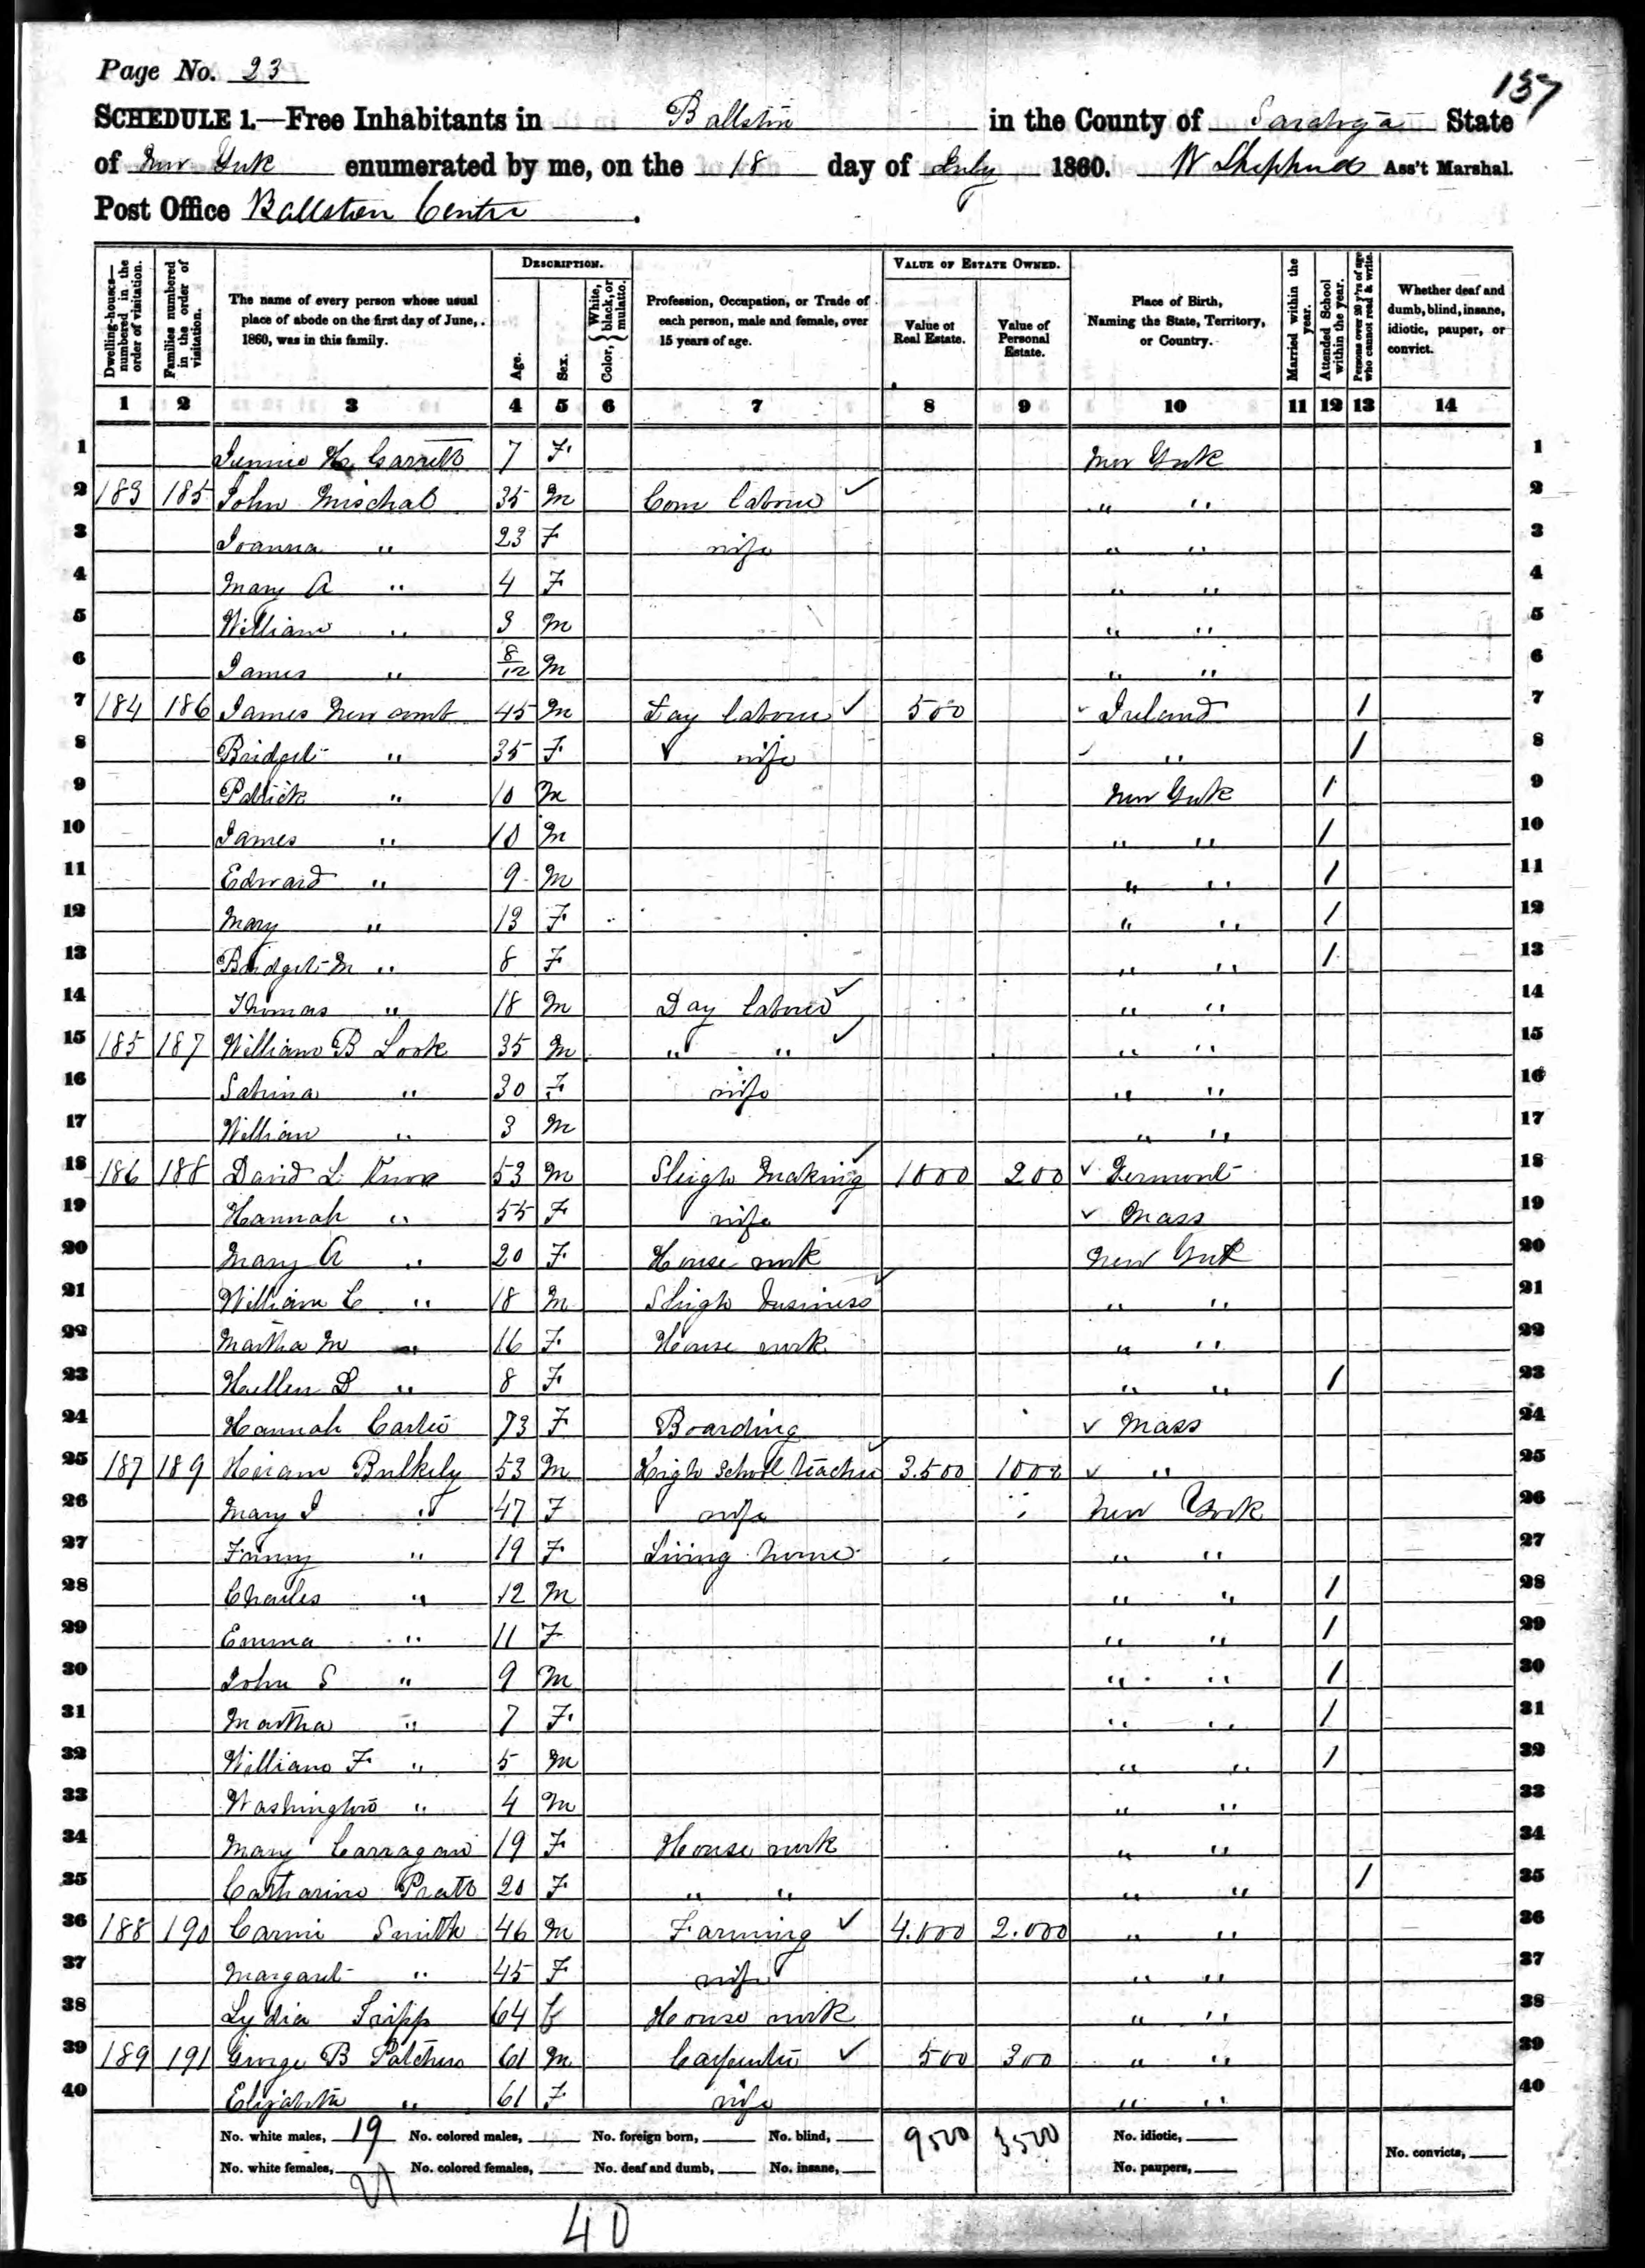 Page No. 23
137
SCHEDULE 1.—Free Inhabitants in Ballston in the County of Saratoga State
of New York enumerated by me, on the 18 day of July 1860. W Shepherd Ass't Marshal.
Post Office Ballston Centre.
Dwelling-houses—numbered in the order of visitation. Families numbered in the order of visitation. The name of every person whose usual place of abode on the first day of June, 1860, was in this family. DESCRIPTION. Age. Sex. Color, {White, black, or mulatto. Profession, Occupation, or Trade of each person, male and female, over 15 years of age. VALUE OF ESTATE OWNED. Value of Real Estate. Value of Personal Estate. Place of Birth, Naming the State, Territory, or Country. Married within the year. Attended School within the year. Persons over 20 y'rs of age who cannot read & write. Whether deaf and dumb, blind, insane, idiotic, pauper, or convict.
1 2 3 4 5 6 7 8 9 10 11 12 13 14
1 Jennie H. Garrett 7 F New York 1
2 183 185 John Mischal 35 M Com labour ✓ " " 2
3 Joanna " 23 F wife " " 3
4 Mary A " 4 F " " 4
5 William " 3 M " " 5
6 James " 8/12 M " " 6
7 184 186 James Newcomb 45 M Day labour ✓ 500 ✓ Ireland / 7
8 Bridget " 35 F ✓ wife ✓ " / 8
9 Patrick " 10 M New York / 9
10 James " 10 M " " / 10
11 Edward " 9 M " " / 11
12 Mary " 13 F " " / 12
13 Bridget M " 8 F " " / 13
14 Thomas " 18 M Day labour ✓ " " 14
15 185 187 William B Look 35 M " " ✓ " " 15
16 Sabrina " 30 F wife " " 16
17 William " 3 M " " 17
18 186 188 David L. Knox 53 M Sleigh Making ✓ 1000 200 ✓ Vermont 18
19 Hannah " 55 F wife ✓ Mass 19
20 Mary A " 20 F House work New York 20
21 William C " 18 M Sleigh business ✓ " " 21
22 Martha M " 16 F House work " " 22
23 Hellen D " 8 F " " / 23
24 Hannah Carter 73 F Boarding ✓ Mass 24
25 187 189 Hiram Bulkely 53 M High School teacher ✓ 3.500 1000 ✓ " 25
26 Mary J " 47 F wife New York 26
27 Fanny " 19 F Living home " " 27
28 Charles " 12 M " " / 28
29 Emma " 11 F " " / 29
30 John S " 9 M " " / 30
31 Martha " 7 F " " / 31
32 William F " 5 M " " / 32
33 Washington " 4 M " " 33
34 Mary Carragan 19 F House work " " 34
35 Catharine Pratt 20 F " " " " / 35
36 188 190 Carmi Smith 46 M Farming ✓ 4.000 2.000 " " 36
37 Margaret " 45 F wife " " 37
38 Lydia Tripp 64 F House work " " 38
39 189 191 George B Patchen 61 M Carpenter ✓ 500 300 " " 39
40 Elizabeth " 61 F wife " " 40
No. white males, 19 No. colored males, No. foreign born, No. blind, 9500 3500 No. idiotic,
No. white females, 21 No. colored females, No. deaf and dumb, No. insane, No. paupers, No. convicts,
40